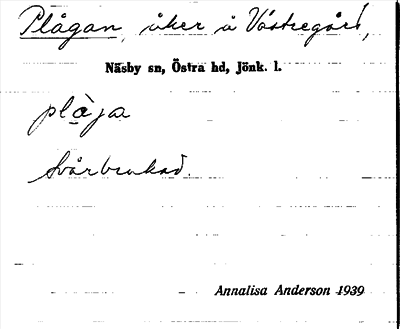 Plågan, åker å Västregård,
Näsby sn, Östra hd, Jönk. l.
plàga
Svårbrukad.
Annalisa Anderson 1939